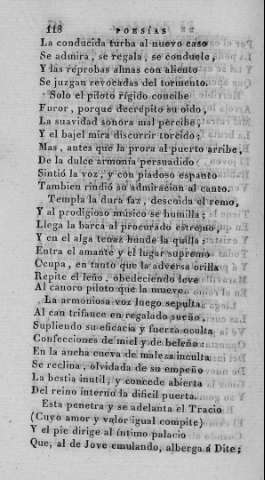 118 POESÍAS
La conducida turba al nuevo caso
Se admira, se regala, se conduele,
Y las réprobas almas con aliento
Se juzgan revocadas del tormento.
Solo el piloto rígido concibe
Furor, porque decrépito su oido,
La suavidad sonora mal percibe,
Y el bajel mira discurrir torcido;
Mas, antes que la prora al puerto arribe,
De la dulce armonía persuadido
Sintió la voz, y con piadoso espanto
Tambien rindió su admiracion al canto.
Templa la dura faz, descuida el remo,
Y al prodigioso músico se humilla;
Llega la barca al procurado estremo,
Y en el alga tenaz hunde la quilla;
Entre el amante y el lugar supremo
Ocupa, en tanto que la adversa orilla
Repite el leño, obedeciendo leve
Al canoro piloto que la mueve.
La armoniosa voz luego sepulta
Al can trifauce en regalado sueño,
Supliendo su eficacia y fuerza oculta
Confecciones de miel y de beleño:
En la ancha cueva de maleza inculta
Se reclina, olvidada de su empeño
La bestia inutil, y concede abierta
Del reino interno la dificil puerta.
Esta penetra y se adelanta el Tracio
(Cuyo amor y valor igual compite)
Y el pie dirige al íntimo palacio
Que, al de Jove emulando, alberga á Dite;